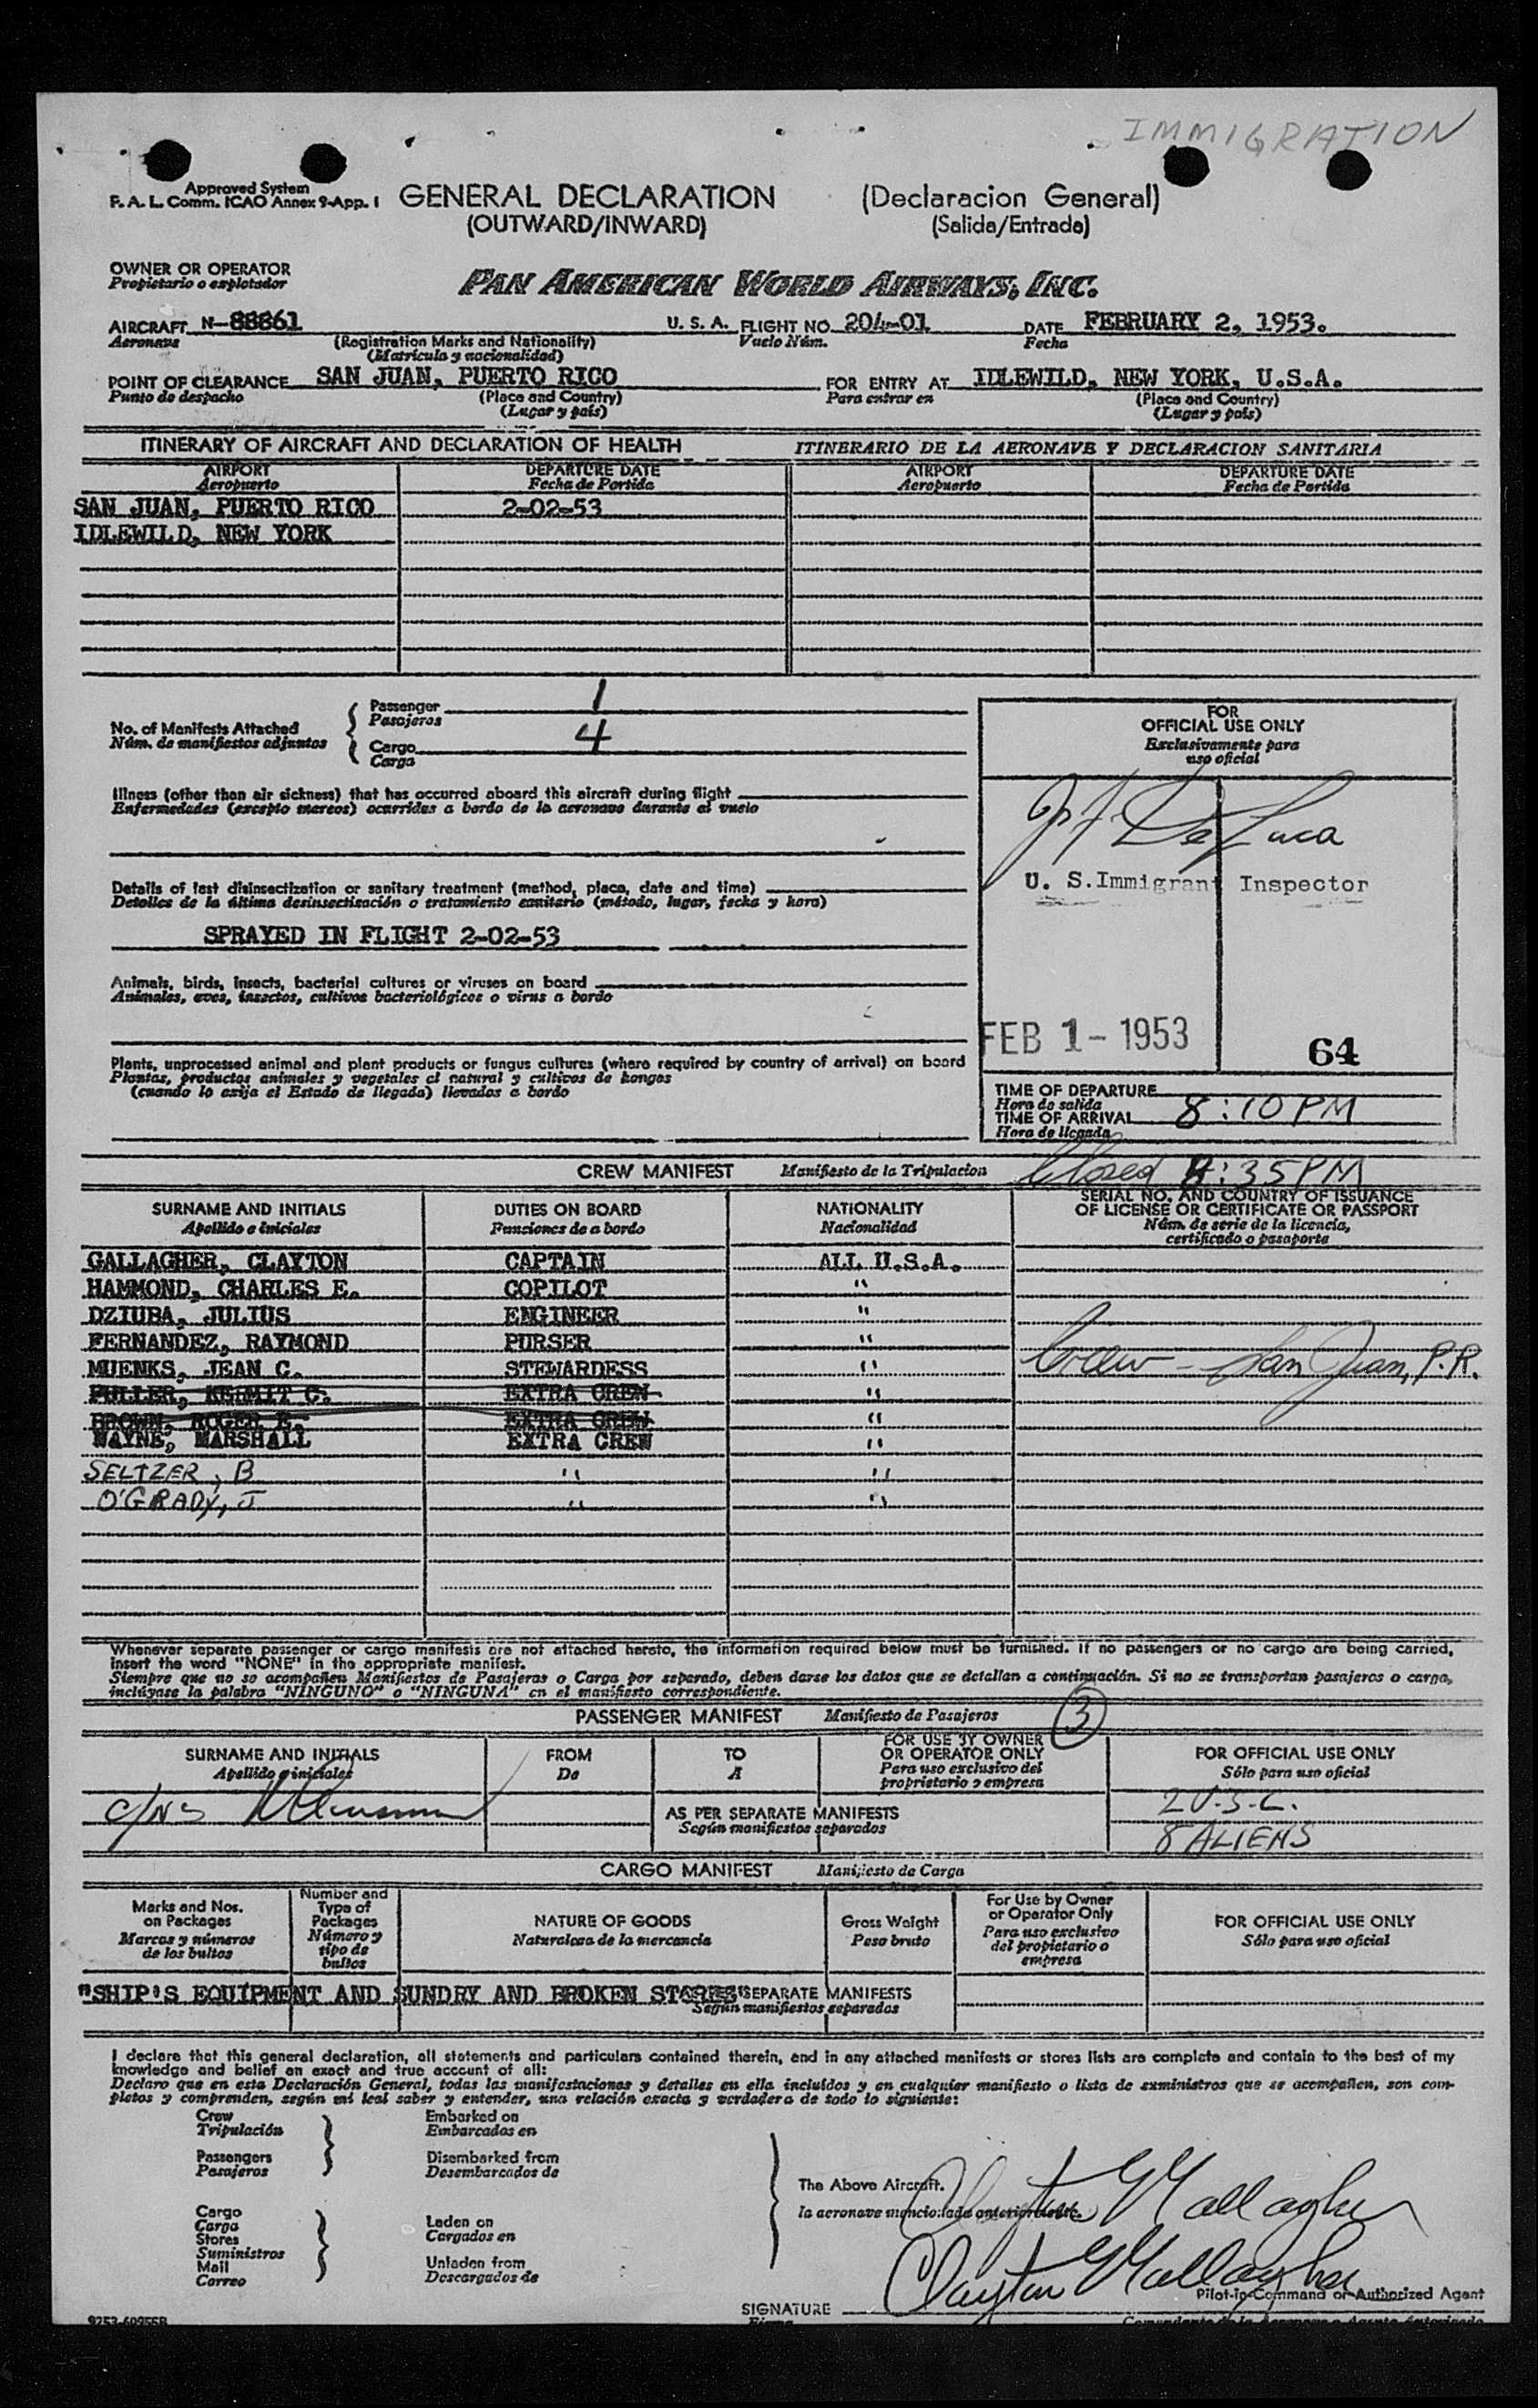 IMMIGRATION
Approved System
F. A. L. Comm. ICAO Annex 9-App. 1
GENERAL DECLARATION (Declaracion General)
(OUTWARD/INWARD) (Salida/Entrada)
OWNER OR OPERATOR
Propietario o explotador
PAN AMERICAN WORLD AIRWAYS, INC.
AIRCRAFT N-88861 U. S. A. FLIGHT NO. 204-01 DATE FEBRUARY 2, 1953.
Aeronave (Registration Marks and Nationality) Vuelo Núm. Fecha
(Matricula y nacionalidad)
POINT OF CLEARANCE SAN JUAN, PUERTO RICO FOR ENTRY AT IDLEWILD, NEW YORK, U.S.A.
Punto de despacho (Place and Country) Para entrar en (Place and Country)
(Lugar y país) (Lugar y país)
ITINERARY OF AIRCRAFT AND DECLARATION OF HEALTH ITINERARIO DE LA AERONAVE Y DECLARACION SANITARIA
AIRPORT DEPARTURE DATE AIRPORT DEPARTURE DATE
Aeropuerto Fecha de Partida Aeropuerto Fecha de Partida
SAN JUAN, PUERTO RICO 2-02-53
IDLEWILD, NEW YORK
No. of Manifests Attached
Núm. de manifiestos adjuntos
Passenger 1
Pasajeros
Cargo 4
Carga
FOR
OFFICIAL USE ONLY
Exclusivamente para
uso oficial
Illness (other than air sickness) that has occurred aboard this aircraft during flight
Enfermedades (excepto mareos) ocurridas a bordo de la aeronave durante el vuelo
De Luca
U. S. Immigrant Inspector
Details of last disinsectization or sanitary treatment (method, place, date and time)
Detalles de la última desinsectisación o tratamiento sanitario (método, lugar, fecha y hora)
SPRAYED IN FLIGHT 2-02-53
Animals, birds, insects, bacterial cultures or viruses on board
Animales, aves, insectos, cultivos bacteriológicos o virus a bordo
FEB 1 - 1953 64
Plants, unprocessed animal and plant products or fungus cultures (where required by country of arrival) on board
Plantas, productos animales y vegetales al natural y cultivos de hongos
(cuando lo exija el Estado de llegada) llevados a bordo
TIME OF DEPARTURE
Hora de salida
TIME OF ARRIVAL 8:10 PM
Hora de llegada
CREW MANIFEST Manifiesto de la Tripulacion Closed 8:35 PM
SURNAME AND INITIALS DUTIES ON BOARD NATIONALITY SERIAL NO. AND COUNTRY OF ISSUANCE
OF LICENSE OR CERTIFICATE OR PASSPORT
Apellido e iniciales Funciones de a bordo Nacionalidad Núm. de serie de la licencia,
certificado o pasaporte
GALLAGHER, CLAYTON CAPTAIN ALL U.S.A.
HAMMOND, CHARLES E. COPILOT "
DZIUBA, JULIUS ENGINEER "
FERNANDEZ, RAYMOND PURSER "
MUENKS, JEAN C. STEWARDESS " Crew - San Juan, P.R.
FULLER, KERMIT C. EXTRA CREW "
BROWN, ROGER E. EXTRA CREW "
WAYNE, MARSHALL EXTRA CREW "
SELTZER, B " "
O'GRADY, J " "
Whenever separate passenger or cargo manifests are not attached hereto, the information required below must be furnished. If no passengers or no cargo are being carried,
insert the word "NONE" in the appropriate manifest.
Siempre que no se acompañen Manifiestos de Pasajeros o Carga por separado, deben darse los datos que se detallan a continuación. Si no se transportan pasajeros o carga,
inclúyase la palabra "NINGUNO" o "NINGUNA" en el manifiesto correspondiente.
PASSENGER MANIFEST Manifiesto de Pasajeros 3
SURNAME AND INITIALS FROM TO FOR USE BY OWNER
OR OPERATOR ONLY FOR OFFICIAL USE ONLY
Apellido e iniciales De A Para uso exclusivo del
propietario o empresa Sólo para uso oficial
2 U.S.C.
AS PER SEPARATE MANIFESTS
Según manifiestos separados
8 ALIENS
CARGO MANIFEST Manifiesto de Carga
Marks and Nos.
on Packages
Marcas y números
de los bultos
Number and
Type of
Packages
Número y
tipo de
bultos
NATURE OF GOODS
Naturaleza de la mercancia
Gross Weight
Peso bruto
For Use by Owner
or Operator Only
Para uso exclusivo
del propietario o
empresa
FOR OFFICIAL USE ONLY
Sólo para uso oficial
"SHIP'S EQUIPMENT AND SUNDRY AND BROKEN STORES" SEPARATE MANIFESTS
Según manifiestos separados
I declare that this general declaration, all statements and particulars contained therein, and in any attached manifests or stores lists are complete and contain to the best of my
knowledge and belief an exact and true account of all:
Declaro que en esta Declaración General, todas las manifestaciones y detalles en ella incluídos y en cualquier manifiesto o lista de suministros que se acompañen, son com-
pletos y comprenden, según mi leal saber y entender, una relación exacta y verdadera de todo lo siguiente:
Crew Embarked on
Tripulación Embarcados en
Passengers Disembarked from
Pasajeros Desembarcados de
The Above Aircraft.
la aeronave mencionada anteriormente.
Clayton Gallagher
Cargo Laden on
Carga Cargados en
Stores
Suministros
Mail Unladen from
Correo Descargados de
Clayton Gallagher
Pilot-in-Command or Authorized Agent
SIGNATURE